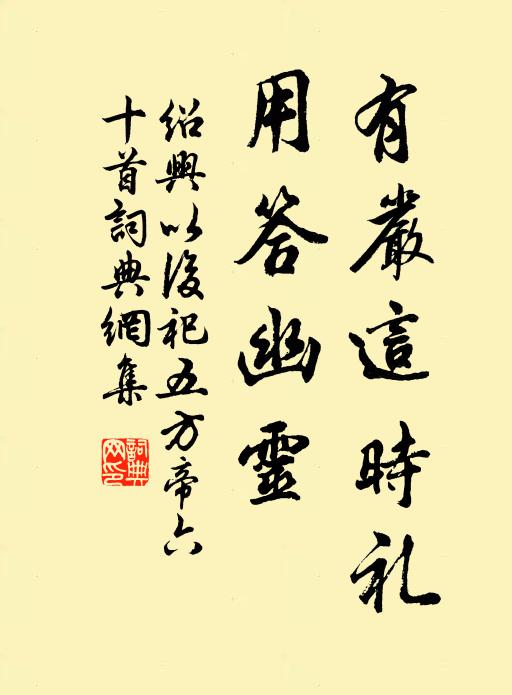 有嚴這時礼
用答幽靈
紹興以後祀五方帝六
十首詞典網集
詞典
网印